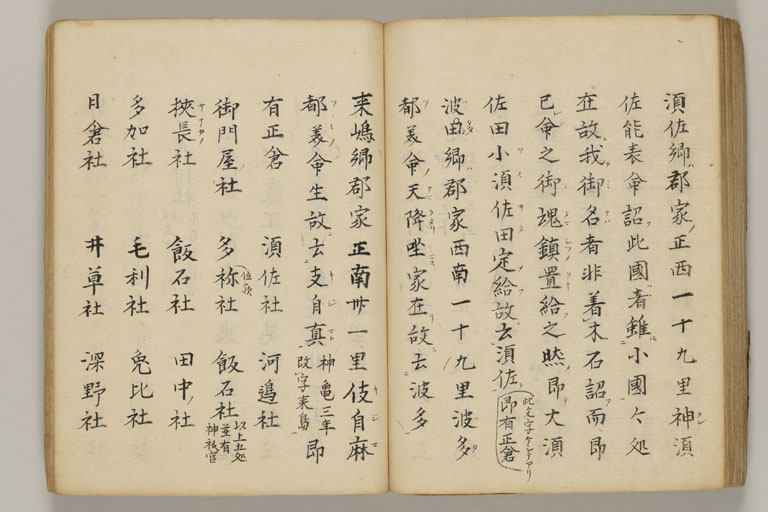 須佐郷郡家正西一十九里神須
佐能表命詔此國者雖小國々処
在故我御名者非着木石詔而即
已命之御魂鎮置給之㷼即大須
佐田小須佐田定給故云須佐即有正倉
此文字ケシテアリ
波多郷郡家西南一十九里波多
都美命天降坐家在故云波多
来嶋郷郡家正南卅一里伎自麻
都美命生故云支自真神亀三年改字来島即
有正倉 須佐社 河邉社
御門屋社 多祢社 飯石社以上五処並有神祇官
狭長社 飯石社 田中社
多加社 毛利社 兎比社
日倉社 井草社 深野社